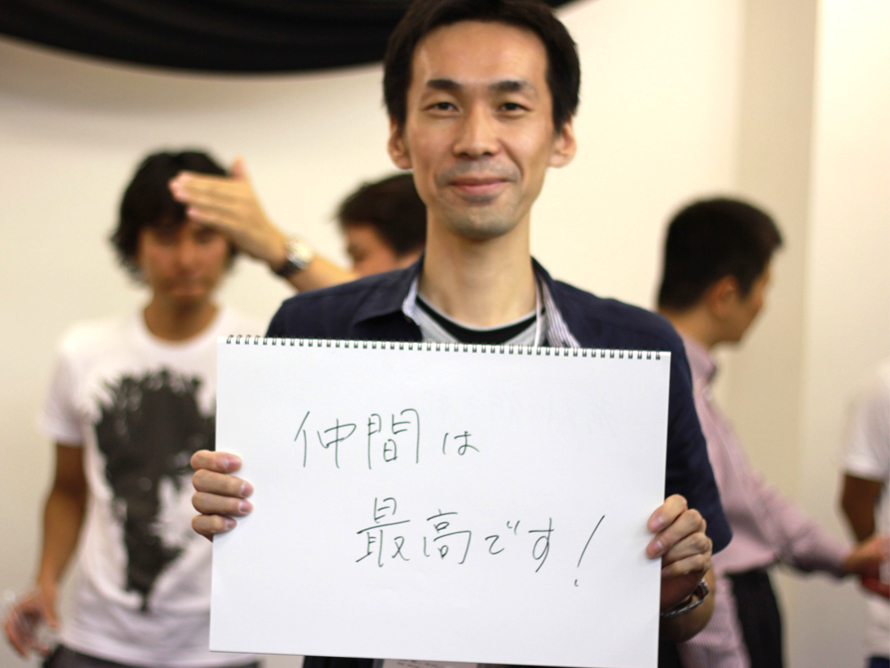 仲間は
最高です!